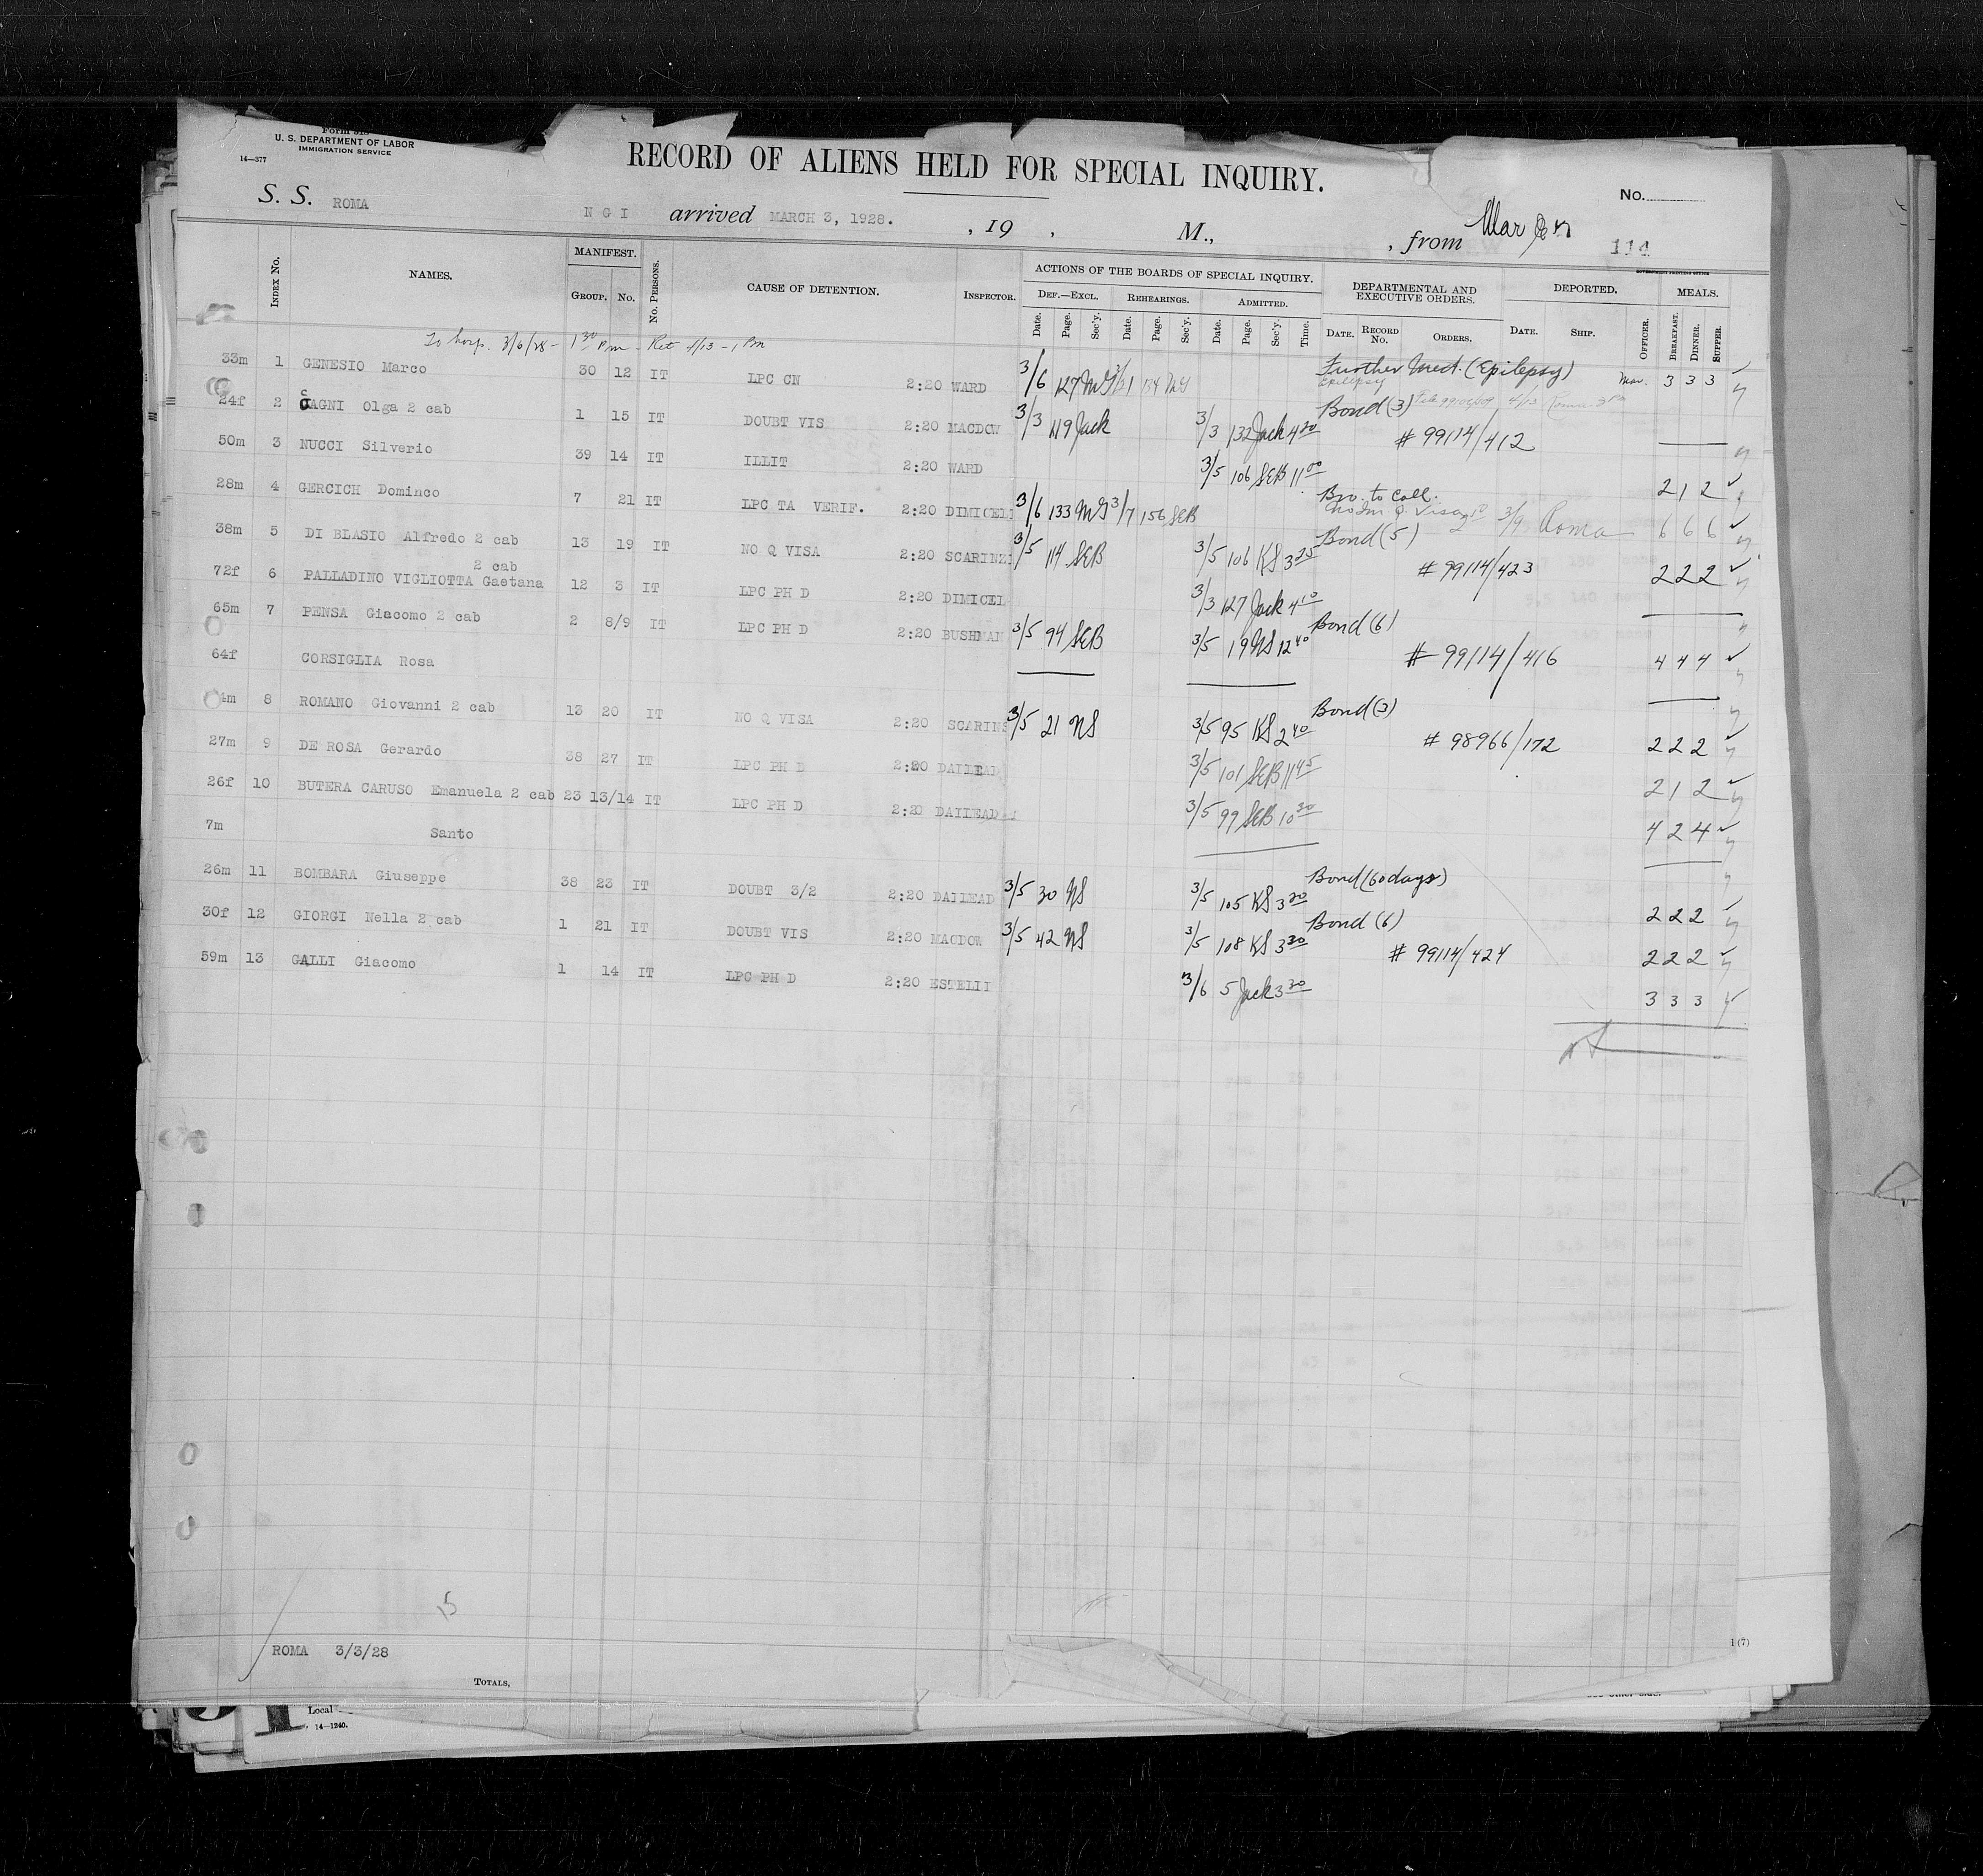 Form 513
U. S. DEPARTMENT OF LABOR
IMMIGRATION SERVICE
14—377
RECORD OF ALIENS HELD FOR SPECIAL INQUIRY.
No.
S. S. ROMA N G I arrived MARCH 3, 1928. , 19 , M., , from 114
GOVERNMENT PRINTING OFFICE
INDEX No. NAMES. MANIFEST. GROUP. No. No. PERSONS. CAUSE OF DETENTION. INSPECTOR. ACTIONS OF THE BOARDS OF SPECIAL INQUIRY. DEF.—EXCL. REHEARINGS. ADMITTED. DEPARTMENTAL AND EXECUTIVE ORDERS. DEPORTED. MEALS.
Date. Page. Sec'y. Date. Page. Sec'y. Date. Page. Sec'y. Time. DATE. RECORD No. ORDERS. DATE. SHIP. OFFICER. BREAKFAST. DINNER. SUPPER.
To hosp. 3/6/28 - 1 30 Pm - Ret 4/13 - 1 Pm
33m 1 GENESIO Marco 30 12 IT LPC CN 2:20 WARD 3/6 127 MG 3/21 134 MG Further Med. (Epilepsy) 3 3 3
Epilepsy 4/13 Roma
24f 2 CAGNI Olga 2 cab 1 15 IT DOUBT VIS 2:20 MACDOW 3/3 119 Jack 3/3 132 Jack 4 20 Bond (3) # 99114/412
50m 3 NUCCI Silverio 39 14 IT ILLIT 2:20 WARD 3/5 106 SEB 11 00 2 1 2
28m 4 GERCICH Dominco 7 21 IT LPC TA VERIF. 2:20 DIMICELI 3/6 133 MG 3/7 156 SEB Bro. to Call. 3/9 Roma 6 6 6
38m 5 DI BLASIO Alfredo 2 cab 13 19 IT NO Q VISA 2:20 SCARINZI 3/5 114 SEB 3/5 106 KS 3 25 Bond (5) # 99114/423 2 2 2
2 cab
72f 6 PALLADINO VIGLIOTTA Gaetana 12 3 IT LPC PH D 2:20 DIMICEL 3/3 127 Jack 4 10
65m 7 PENSA Giacomo 2 cab 2 8/9 IT LPC PH D 2:20 BUSHMAN 3/5 94 SEB 3/5 19 NS 12 40 Bond (6) # 99114/416 4 4 4
64f CORSIGLIA Rosa
4m 8 ROMANO Giovanni 2 cab 13 20 IT NO Q VISA 2:20 SCARINS 3/5 21 NS 3/5 95 KS 2 40 Bond (3) # 98966/172 2 2 2
27m 9 DE ROSA Gerardo 38 27 IT LPC PH D 2:20 DAILEAD 3/5 101 SEB 11 45 2 1 2
26f 10 BUTERA CARUSO Emanuela 2 cab 23 13/14 IT LPC PH D 2:20 DAILEAD 3/5 99 SEB 10 30 4 2 4
7m Santo
26m 11 BOMBARA Giuseppe 38 23 IT DOUBT 3/2 2:20 DAILEAD 3/5 30 NS 3/5 105 KS 3 20 Bond (60 days) 2 2 2
30f 12 GIORGI Nella 2 cab 1 21 IT DOUBT VIS 2:20 MACDOW 3/5 42 NS 3/5 108 KS 3 30 Bond (6) # 99114/424 2 2 2
59m 13 GALLI Giacomo 1 14 IT LPC PH D 2:20 ESTELII 3/6 5 Jack 3 30 3 3 3
15
ROMA 3/3/28
1 (7)
TOTALS,
Local
14—1240.